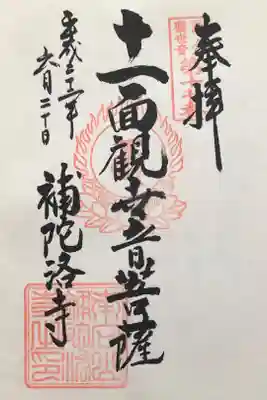 奉拝
十一面観世音菩薩
平成二十三年
六月二十日
補陀洛寺